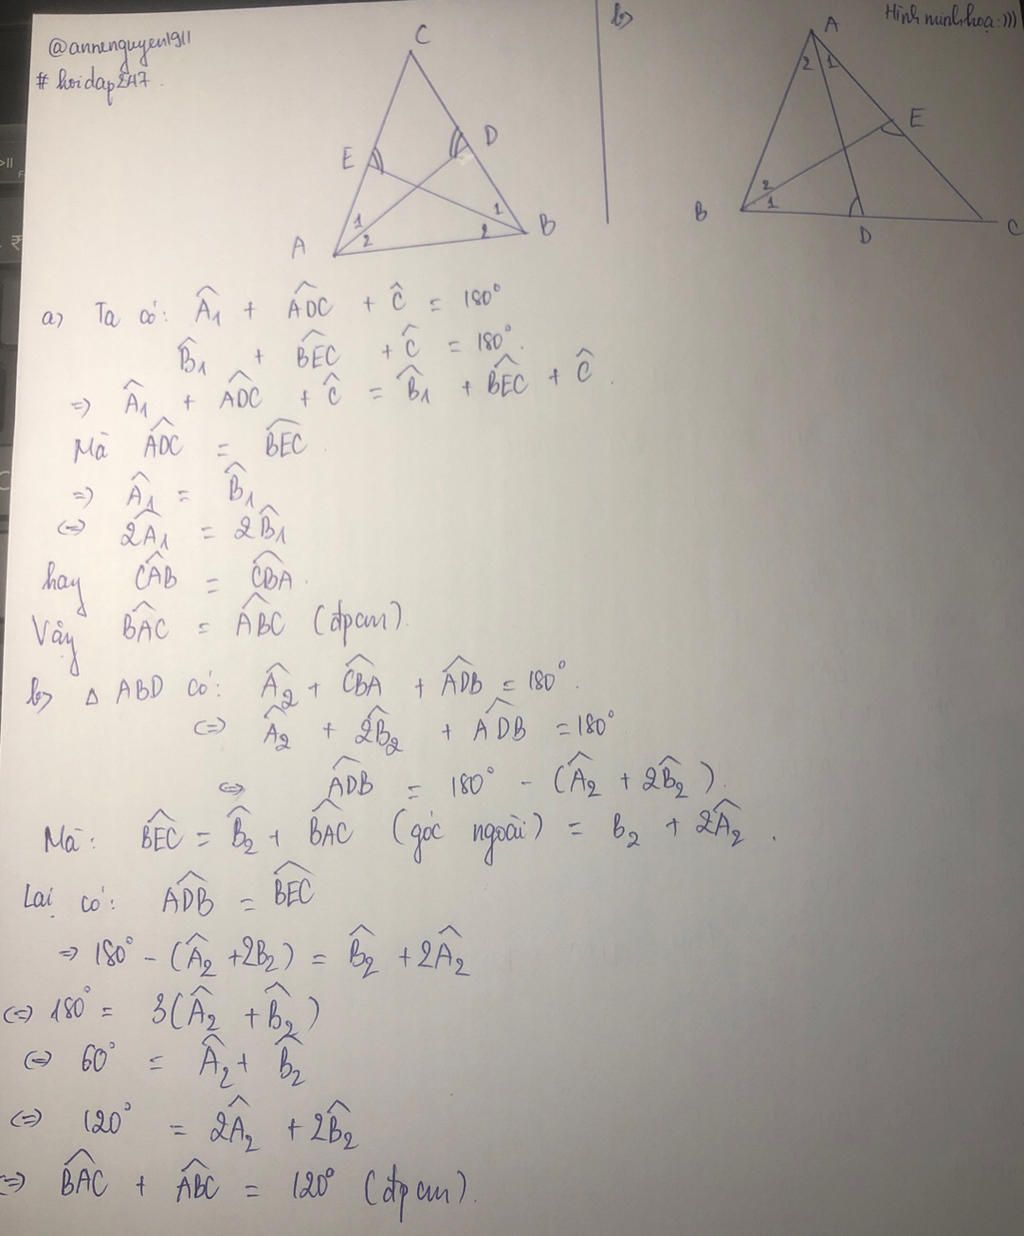 @annenguyen1911
# hoidap247.
C
E
D
1
2
1
2
A
B
b)
Hình minh hoạ :)))
A
2
1
E
2
1
B
D
C
a) Ta có: Â₁ + ADC^ + Ĉ = 180°
B̂₁ + BEC^ + Ĉ = 180°.
=> Â₁ + ADC^ + Ĉ = B̂₁ + BEC^ + Ĉ.
Mà ADC^ = BEC^.
=> Â₁ = B̂₁
<=> 2Â₁ = 2B̂₁
hay CAB^ = CBA^.
Vậy BAC^ = ABC^ (đpcm).
b) Δ ABD có: Â₂ + CBA^ + ADB^ = 180°.
<=> Â₂ + 2B̂₂ + ADB^ = 180°
<=> ADB^ = 180° - (Â₂ + 2B̂₂).
Mà: BEC^ = B̂₂ + BAC^ (góc ngoài) = B₂ + 2Â₂.
Lại có: ADB^ = BEC^
=> 180° - (Â₂ + 2B₂) = B̂₂ + 2Â₂
<=> 180° = 3(Â₂ + B̂₂)
<=> 60° = Â₂ + B̂₂
<=> 120° = 2Â₂ + 2B̂₂
<=> BAC^ + ABC^ = 120° (đpcm).